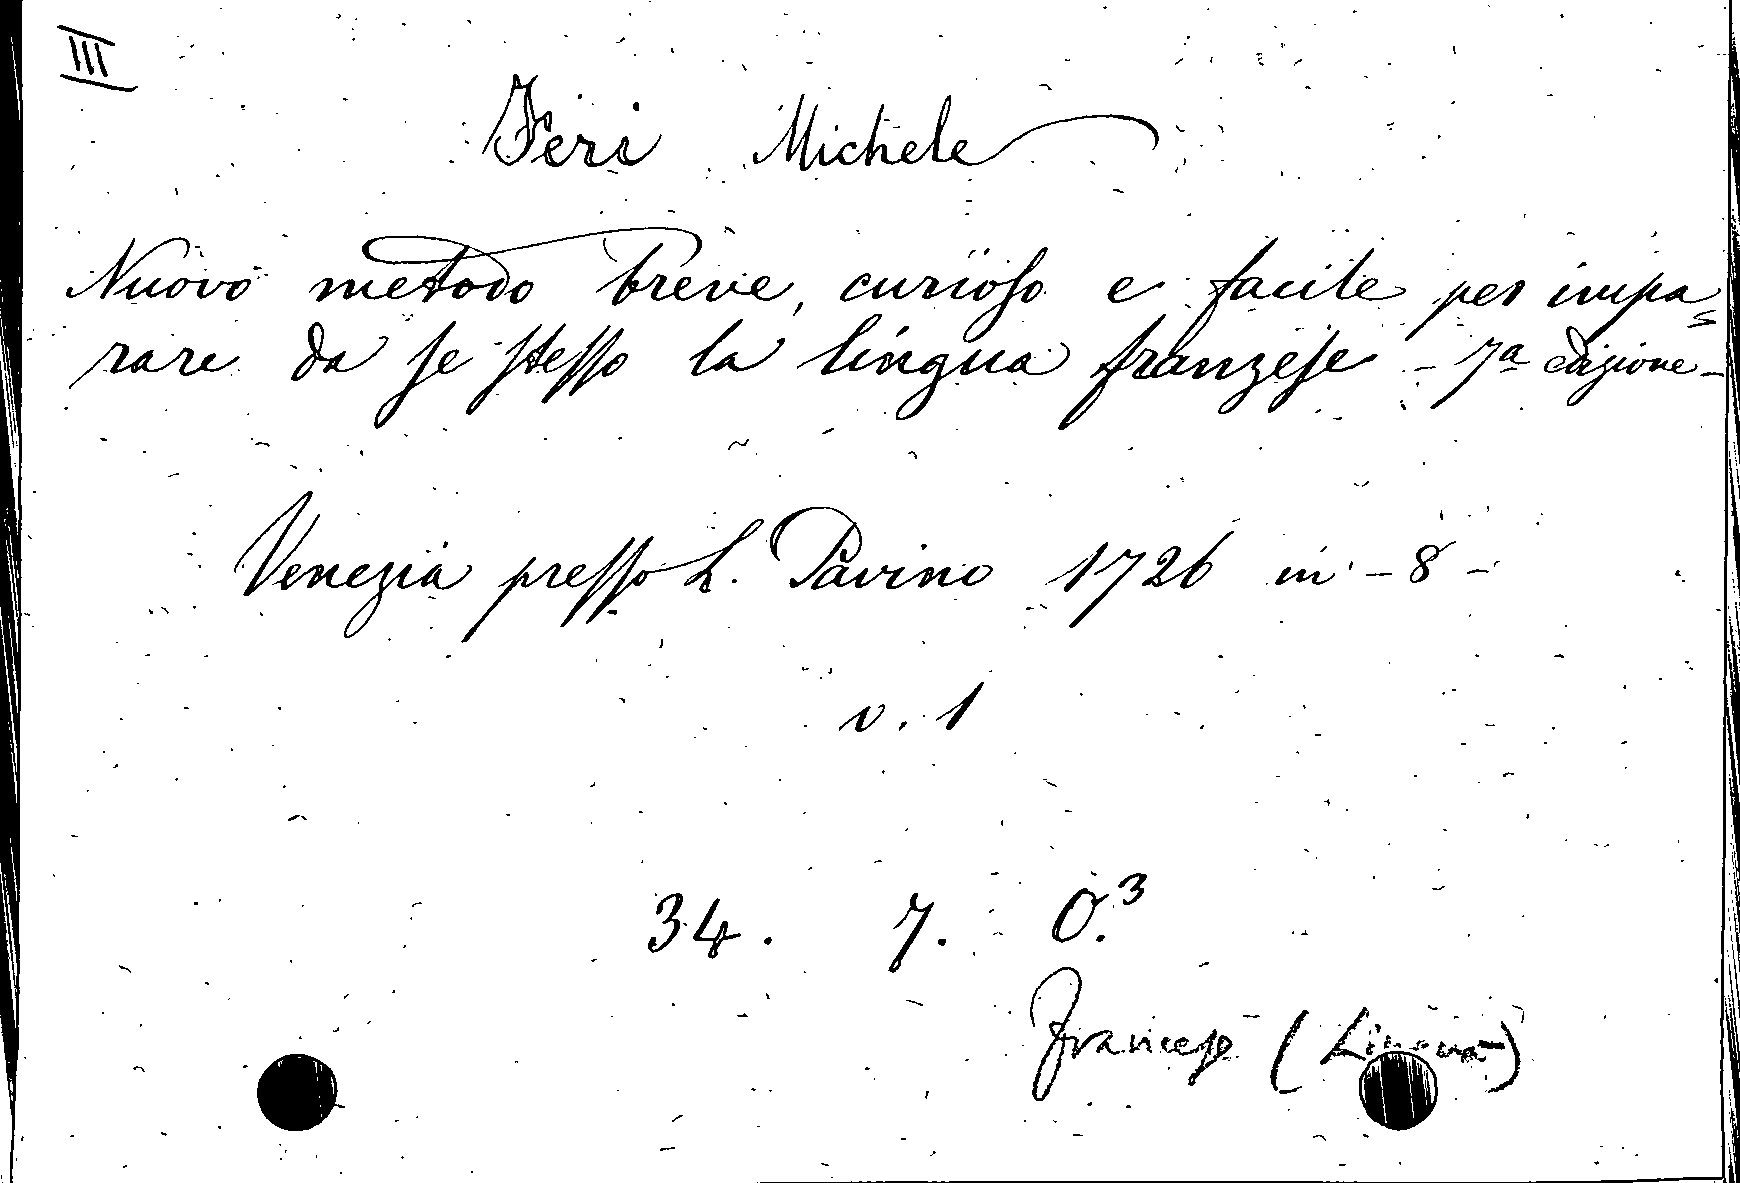 III
Feri Michele
Nuovo metodo breve, curioso e facile per impa=
rare da se stesso la lingua franzese - 7ª edizione -
Venezia presso L. Pavino 1726 in - 8 -
v. 1
34. 7. O.³
Francese (Lingua)